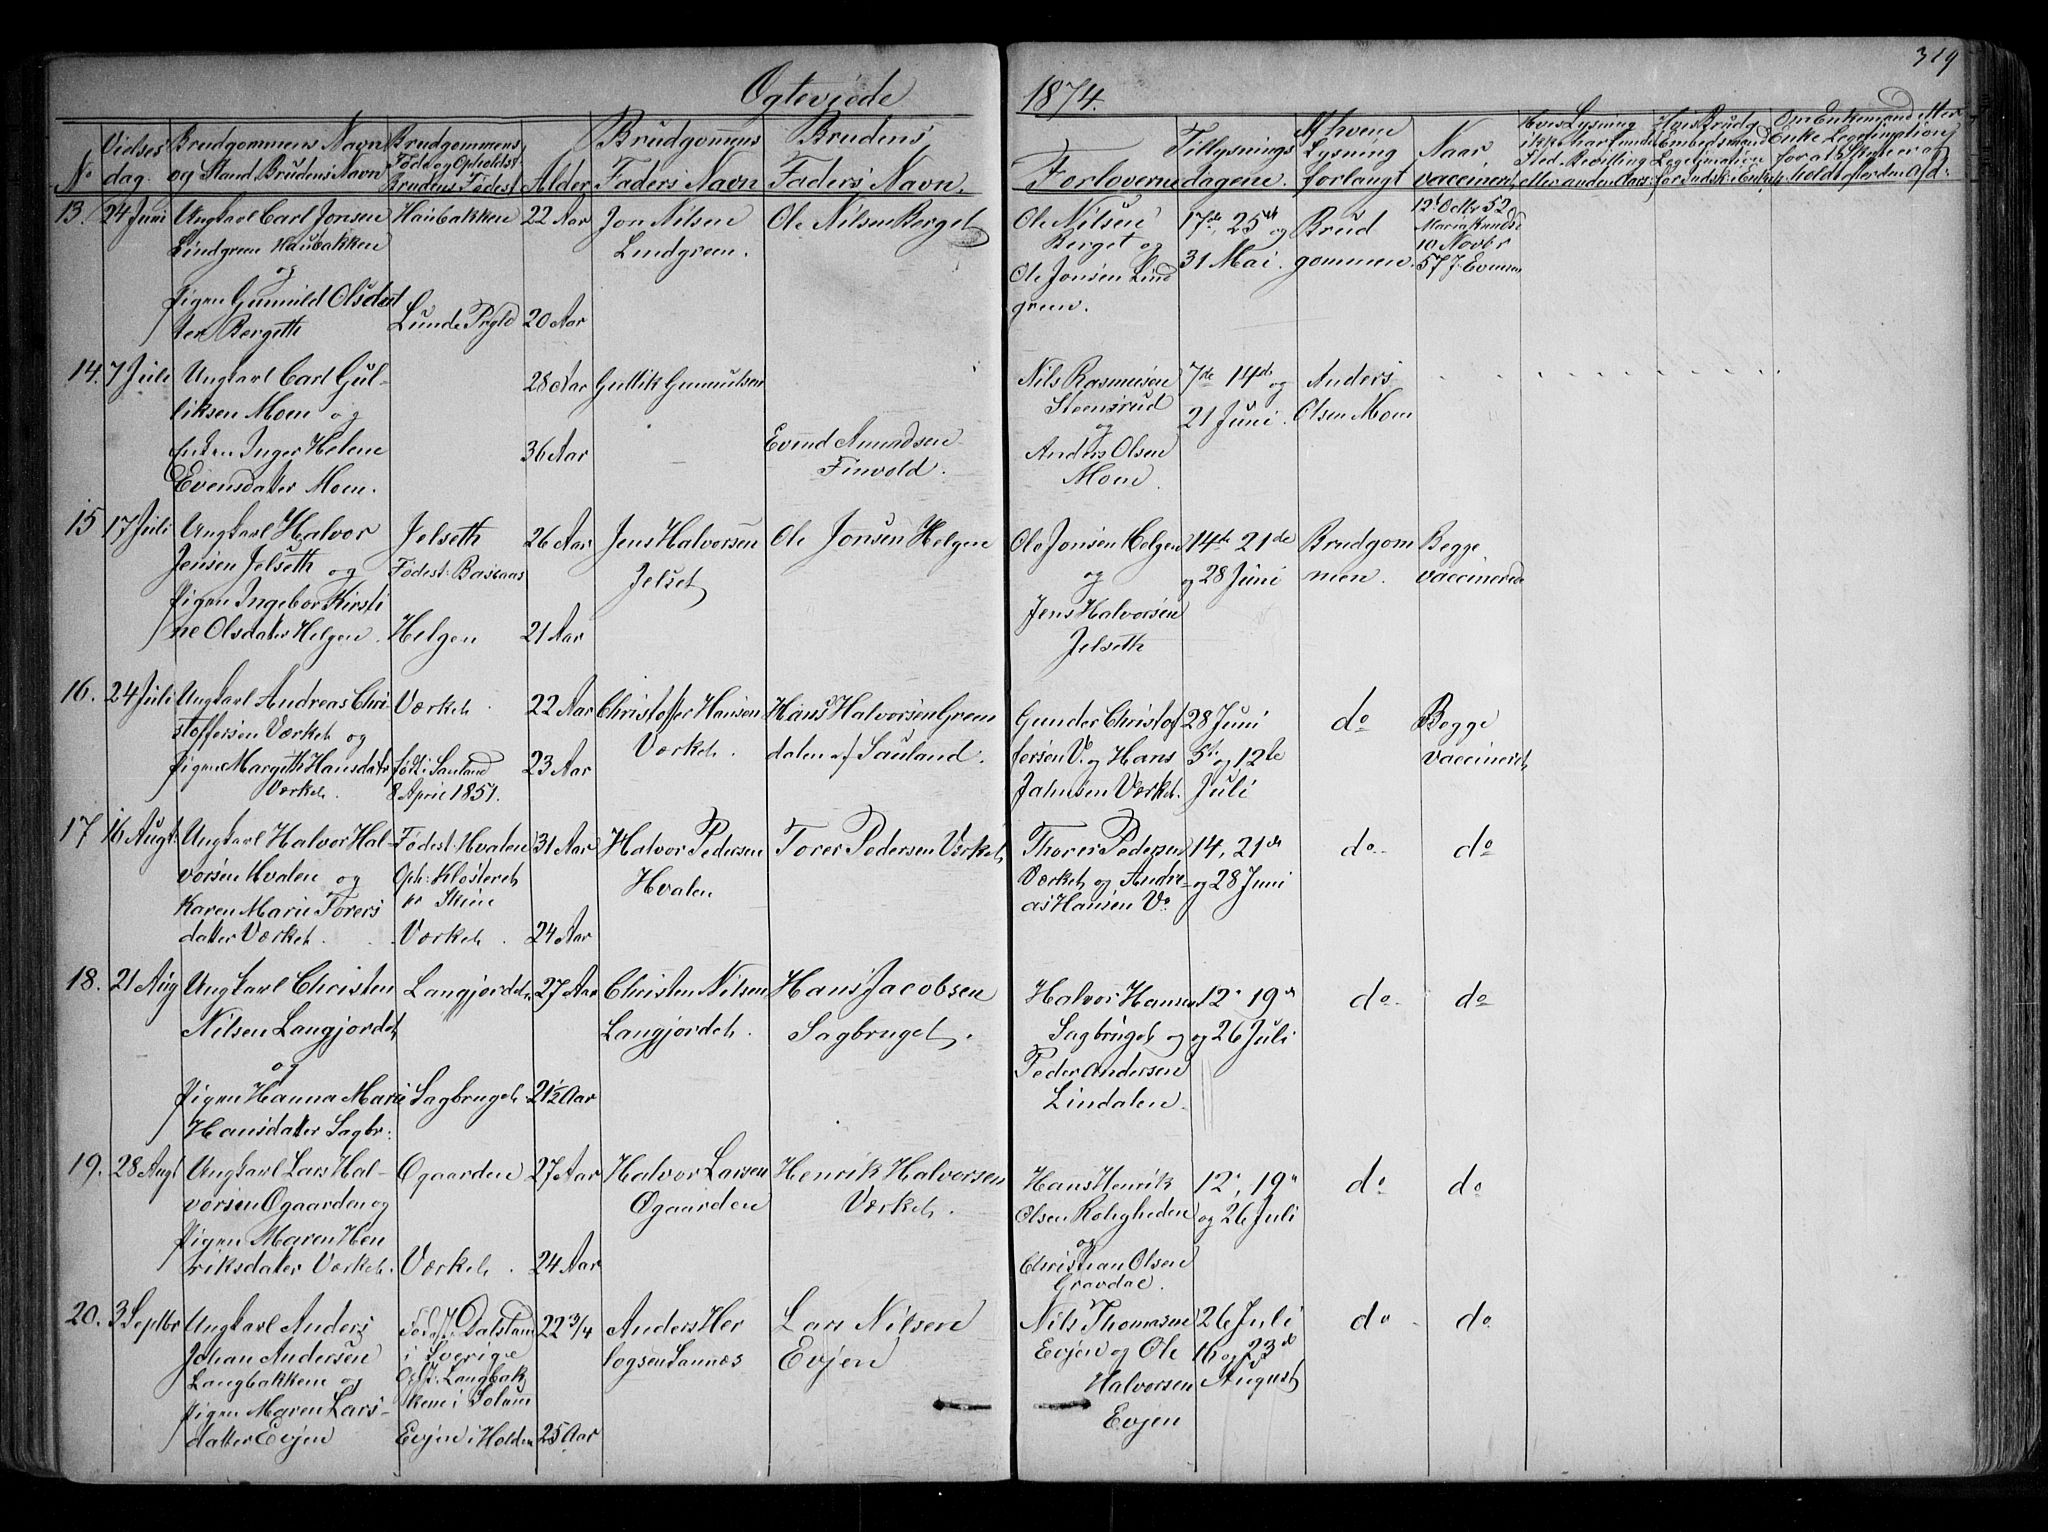 319
Ogteviede 1874.
No
Vidses dag.
Brudgommens Navn og Stand. Brudens Navn
Brudgommens Føde og Opholdst. Brudens Fødest.
Alder
Brudgommens Faders Navn
Brudens Faders Navn.
Forloverne
Tillysnings dagene.
Af hvem Lysning forlangt
Naar vaccineret
13. 24 Juni
Ungkarl Carl Jonsen
Lindgreen Haubakken
og
Pigen Gunnild Olsdat
ter Bergeth
Haubakken
Lunde Prgld
22 Aar
20 Aar
Jon Nilsen
Lindgreen.
Ole Nilsen Berget
Ole Nilsen
Berget og
Ole Jonsen Lind
green.
17de, 25de og
31 Mai.
Brud
gommen.
12te Octbr 52
10 Novbr
57 J. Evensen
14. 7 Juli
Ungkarl Carl Gul-
liksen Moen og
Enken Inger Helene
Evensdatter Moen.
28 Aar
36 Aar
Gullik Gunnulsen
Evend Amundsen
Finvold.
Nils Rasmusen
Steensrud
og
Anders Olsen
Moen.
7de 14de og
21 Juni.
Anders
Olsen Moen
15 17 Juli
Ungkarl Halvor
Jensen Jelseth og
Pigen Ingebor Kirsti
ne Olsdater Helgen.
Jelseth
Fødest: Basaas
Helgen
26 Aar
21 Aar
Jens Halvorsen
Jelset
Ole Jonsen Helgen
Ole Jonsen Helgen
og
Jens Halvorsen
Jelseth
14de 21de
og 28 Juni
Brudgom
men.
Begge
vaccinerede
16. 24 Juli
Ungkarl Andreas Chri
stoffersen Værket og
Pigen Margith Hansdater
Værket.
Værket.
født i Sauland
8 April 1851.
22 Aar
23 Aar
Christoffer Hansen
Værket.
Hans Halvorsen Grøn
dalen af Sauland.
Gunder Christof
fersen V. og Hans
Jahnsen Værket.
28 Juni
5te og 12te
Juli
do
Begge
vaccineret
17 16 Augt.
Ungkarl Halvor Hal-
vorsen Hvalen og
Karen Marie Torers
datter Værket.
Fødest. Hvalen
Oph: Klosteret
pr Skien
Værket.
31 Aar
24 Aar
Halvor Pedersen
Hvalen
Torer Pedersen Værket
Thorer Pedersen
Værket og Andre-
as Hansen Vo
14, 21de
og 28 Juni
do
do
18. 21 Aug
Ungkarl Christen
Nilsen Langjordet
og
Pigen Hanna Marie
Hansdater Sagbr:
Langjordet.
Sagbruget.
27 Aar
21½ Aar
Christen Nilsen
Langjordet.
Hans Jacobsen
Sagbruget.
Halvor Hansen
Sagbruget og
Peder Andersen
Lindalen.
12, 19de
og 26 Juli
do
do
19. 28 Augt
Ungkarl Lars Hal-
vorsen Ogaarden og
Pigen Maren Hen
riksdater Værket.
Ogaarden
Værket.
27 Aar
24 Aar
Halvor Larsen
Øgaarden
Henrik Halvorsen
Værket.
Hans Henrik
Olsen Roligheden
og
Christian Olsen
Gravdal.
12, 19
og 26 Juli
do
do
20. 3 Septbr
Ungkarl Anders
Johan Andersen
Langbakken og
Pigen Maren Lars-
datter Evjen
Fødest. Dalsland
i Sverige
Opst: Langbak
ken i Solum
Evjen i Holden
22 3/4
25 Aar
Anders Her
logsen Sannes
Lars Nilsen
Evjen
Nils Thomasen
Evjen og Ole
Halvorsen
Evjen
26 Juli
16 og 23de
August
do
do